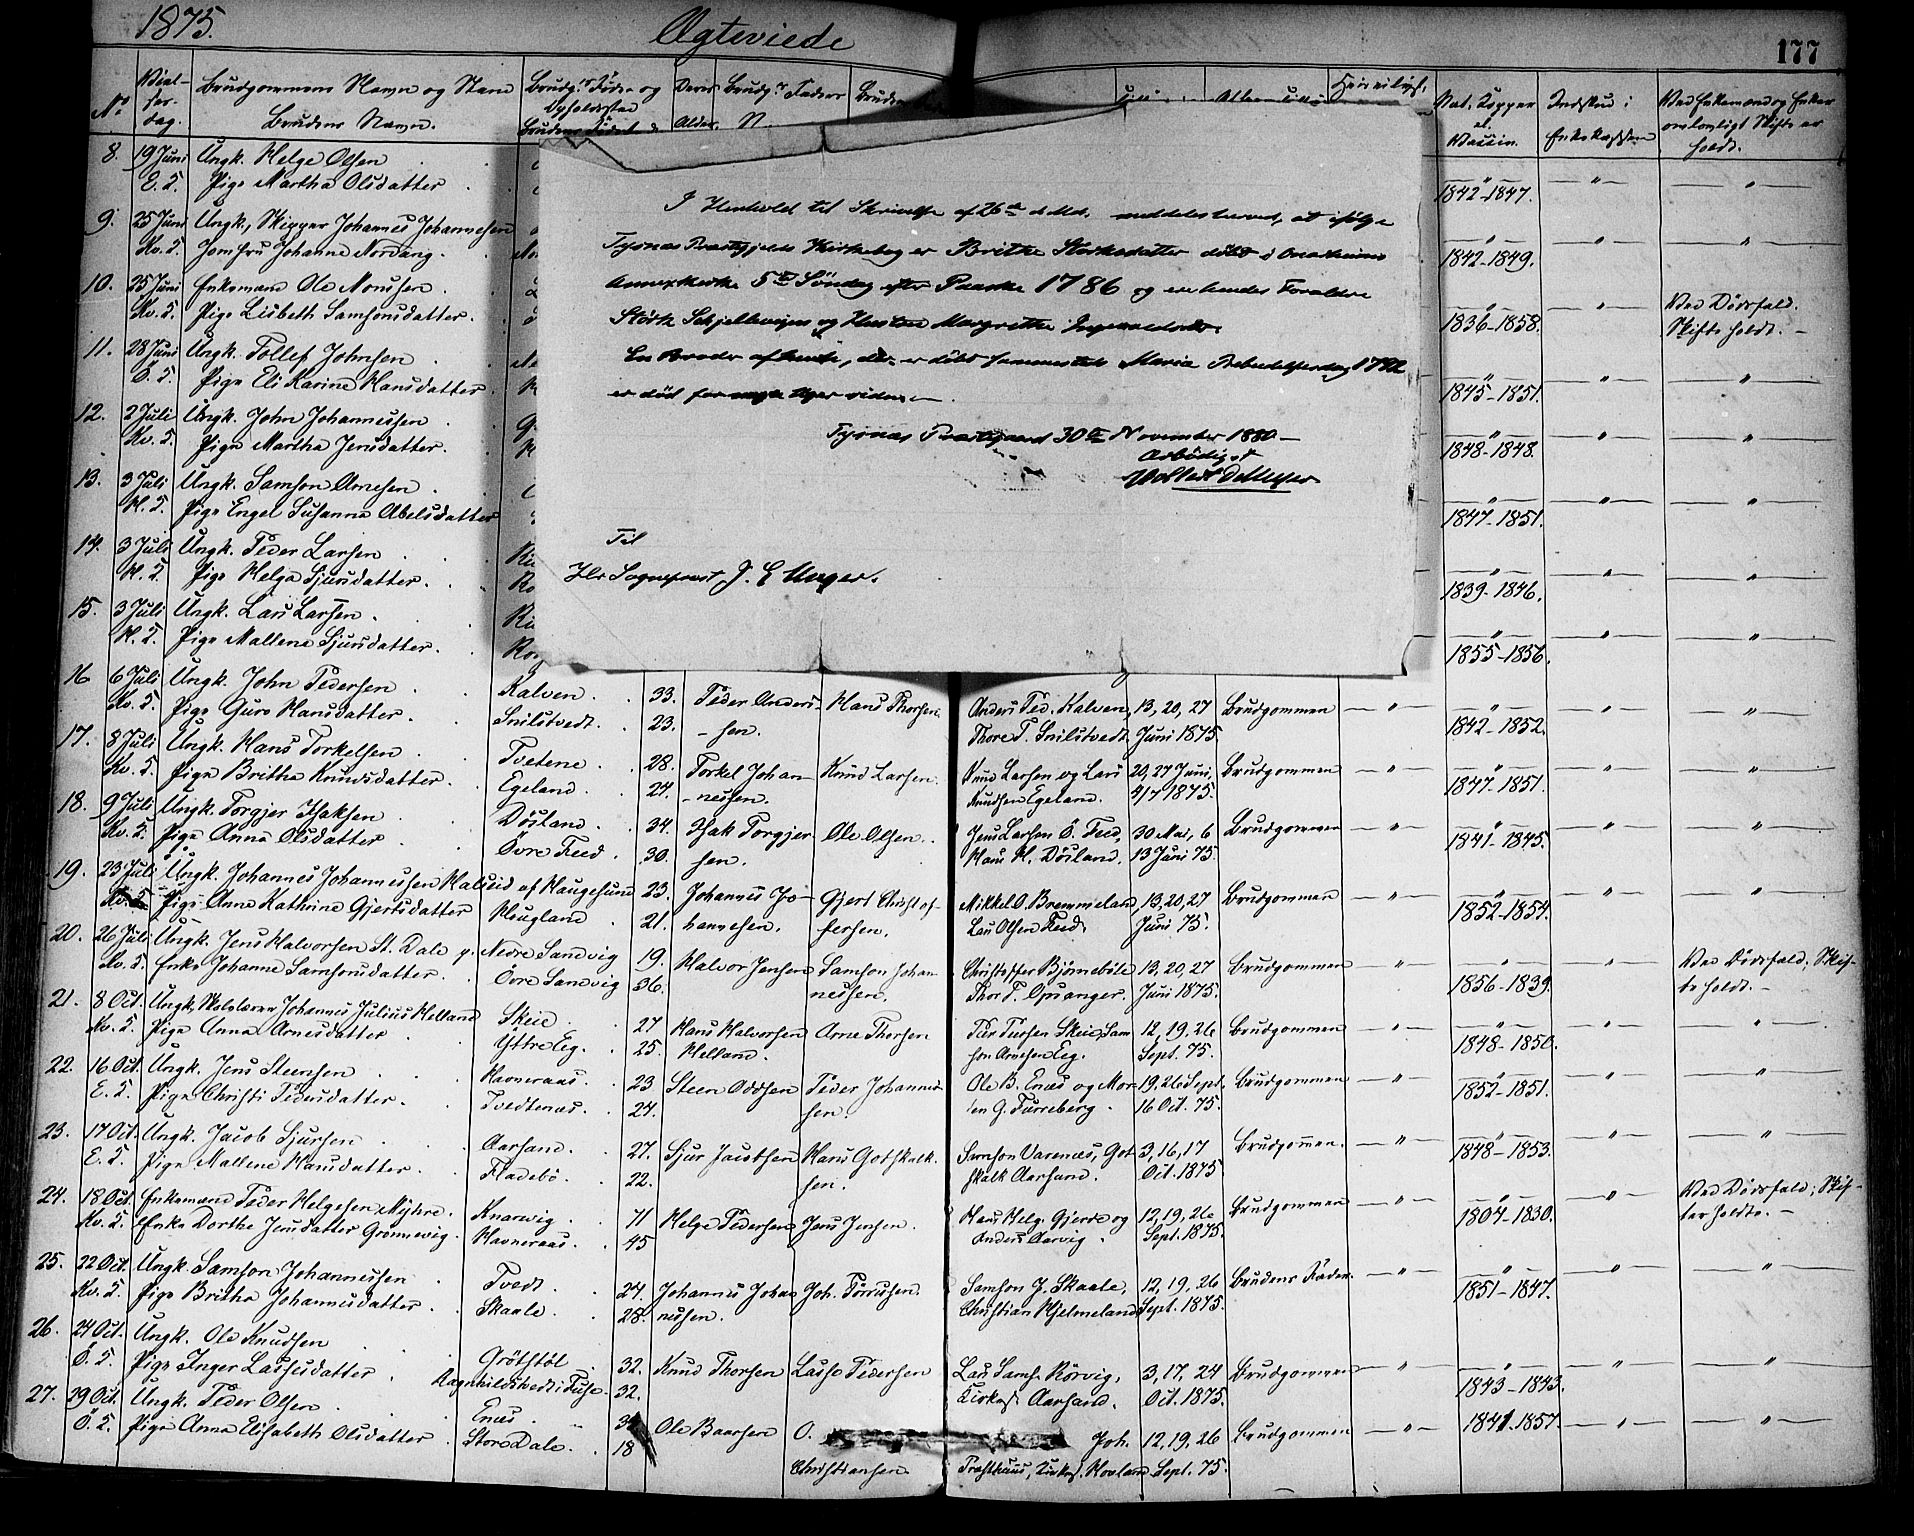 1875.
Ægteviede
177
No
Viel-
ser-
dag.
Brudgommens Navn og Stand
Brudens Navn.
Brudg.s Føde- og
Opholdssted
Deres
Alder.
Brudg.s Faders
N.
Nat. Kopper
el.
Vaccin.
Indskud i
Enkekassen
Ved Enkemænd og Enker
om lovligt Skifte er
holdt.
8. 19 Juni Ungk. Helge Olsen
E. K. Pige Martha Olsdatter 1842-1847.
9. 25 Juni Ungk., Skipper Johannes Johannesen
Kv. K. Jomfru Johanne Nordang. 1842-1849.
10. 25 Juni Enkemand Ole Monsen
Kv. K. Pige Lisbeth Samsonsdatter. 1836-1858. Ved Dødsfald. Skifte holdt. -
11. 28 Juni Ungk. Tollef Johnsen
Ö. K. Pige Eli Karine Hansdatter 1845-1851.
12. 2 Juli Ungk. John Johannessen
Kv. K. Pige Martha Jensdatter. 1848-1848.
13. 3 Juli Ungk. Samson Arnesen
H. K. Pige Engel Susanna Abelsdatter 1847-1851.
14. 3 Juli Ungk. Peder Larsen
H. K. Pige Helga Sjursdatter. 1839-1846.
15. 3 Juli Ungk. Lars Larsen.
H. K. Pige Mallene Sjursdatter. 1855-1856.
I Henhold til Skrivelse af 26de d. Md. meddeles herved, at ifølge
Tysnæs Præstegjelds Kirkebog er Brithe Störksdatter döbt i Onarheims
Annexkirke 5te Söndag efter Paaske 1786 og ere hendes Forældre
Störk Schjellevigen og Hustru Margrethe
En Broder af hende, der er döbt sammesteds Maria Bebudelsesdag 1792
er död for nogle Uger siden. -
Tysnæs Præstegaard 30te November 1880 -
Ærbödigst
Til
Hr. Sognepræst J. E. Unger.
16 6 Juli Ungk. John Pedersen Kalven. 33. Peder Anders- Hans Thorsen. Anders Ped. Kalven, 13, 20, 27 Brudgommen
Kv. K. Pige Guro Hansdatter. Snilstvedt. 23. -sen. Thore T. Snilstvedt. Juni 1875 1842-1852.
17. 8 Juli Ungk. Hans Torkelsen Tvetene. 28. Torkel Johan- Knud Larsen. Knud Larsen og Lars 20, 27 Juni, Brudgommen
Kv. K. Pige Britha Knudsdatter. Egeland. 24. -nessen. Knudsen Egeland. 4/7 1875. 1847-1851.
18. 9 Juli Ungk. Torgjer Isaksen Døsland. 34. Isak Torgjer- Ole Olsen. Jens Larsen Ö. Feed, 30 Mai, 6 Brudgommen
Kv. K. Pige Anna Olsdatter Övre Feed. 30. sen. Hans H. Døsland. 13 Juni 75. 1841-1845.
19. 23 Juli Ungk. Johannes Johannessen Halseid af Haugesund 23. Johannes Jo- Gjert Christof- Mikkel O. Bremmeland, 13, 20, 27 Brudgommen
Pige Anne Kathrine Gjertsdatter Heugland 21. hannesen. fersen. Lars Olsen Feed. Juni 75. 1852-1854.
20. 26 Juli Ungk. Jens Halvorsen St. Dale p. Nedre Sandvig 19. Halvor Jensen Samson Johan- Christoffer Bjørnebøle 13, 20, 27 Brudgommen Ved Dødsfald; Skif-
Kv. K. Enke Johanne Samsonsdatter. Övre Sandvig 36. nessen. Thor T. Opsanger. Juni 1875. 1856-1839. te holdt. -
21. 8 Oct. Ungk., Skolelærer Johannes Julius Helland Skeie 27 Hans Halvorsen Arne Thorsen Peer Peersen Skeie, Sam- 12, 19, 26 Brudgommen
Kv. K. Pige Anna Arnesdatter Yttre Eeg. 25. Helland. son Arnesen Eeg. Sept. 75. 1848-1850.
22. 16 Oct. Ungk. Jens Steensen Havneraas. 23 Steen Oddsen Peder Johannes- Ole B. Enæs og Mor- 19, 26 Sept. Brudgommen
E. K. Pige Christi Pedersdatter. Tvedtenæs. 24. sen. ten G. Furreberg. 16 Oct. 75. 1852-1851.
23. 17 Oct. Ungk. Jacob Sjursen Aarsand. 27. Sjur Jacobsen Hans Gotskalk- Samson Varenæs, Got- 3, 16, 17 Brudgommen.
E. K. Pige Mallene Hansdatter. Fladebö. 22. sen. skalk Aarsand. Oct. 1875 1848-1853.
24. 18 Oct. Enkemand Peder Helgesen Myhre. Knarvig. 71 Helge Pedersen Jens Jensen. Hans Helg. Gjerde og 12, 19, 26 Brudgommen Ved Dødsfald; Skif-
Kv. K. Enke Dorthe Jensdatter Grønnevig. Havneraas. 45 Anders Aarvig. Sept. 1875. 1804-1830. ter holdte. -
25. 22 Oct. Ungk. Samson Johannessen Tvedt. 24. Johannes Johan- Joh. Torresen. Samson J. Skaale, 12, 19, 26 Brudens Fader.
Kv. K. Pige Britha Johannesdatter. Skaale. 28. nessen. Christian Hjelmeland Sept. 1875. 1851-1847.
26. 24 Oct. Ungk. Ole Knudsen Gröthtöl 32. Knud Thorsen Lasse Pedersen Lars Sams. Rörvig, 3, 17, 24 Brudgommen
Ö. K. Pige Inger Lassesdatter. Ragnhildstvedt i Fuse. 32. Kirkes. Aarsand. Oct. 1875. 1843-1843.
27. 29 Oct. Ungk. Peder Olsen Enæs. Ole Baarsen O. Joh. 12, 19, 26 Brudgommen 1841-1857.
Ö. K. Pige Anna Elisabeth Olsdatter. Store Dale. 18 Christiansen Præsthuus, Kirkes. Hovland Sept. 75.